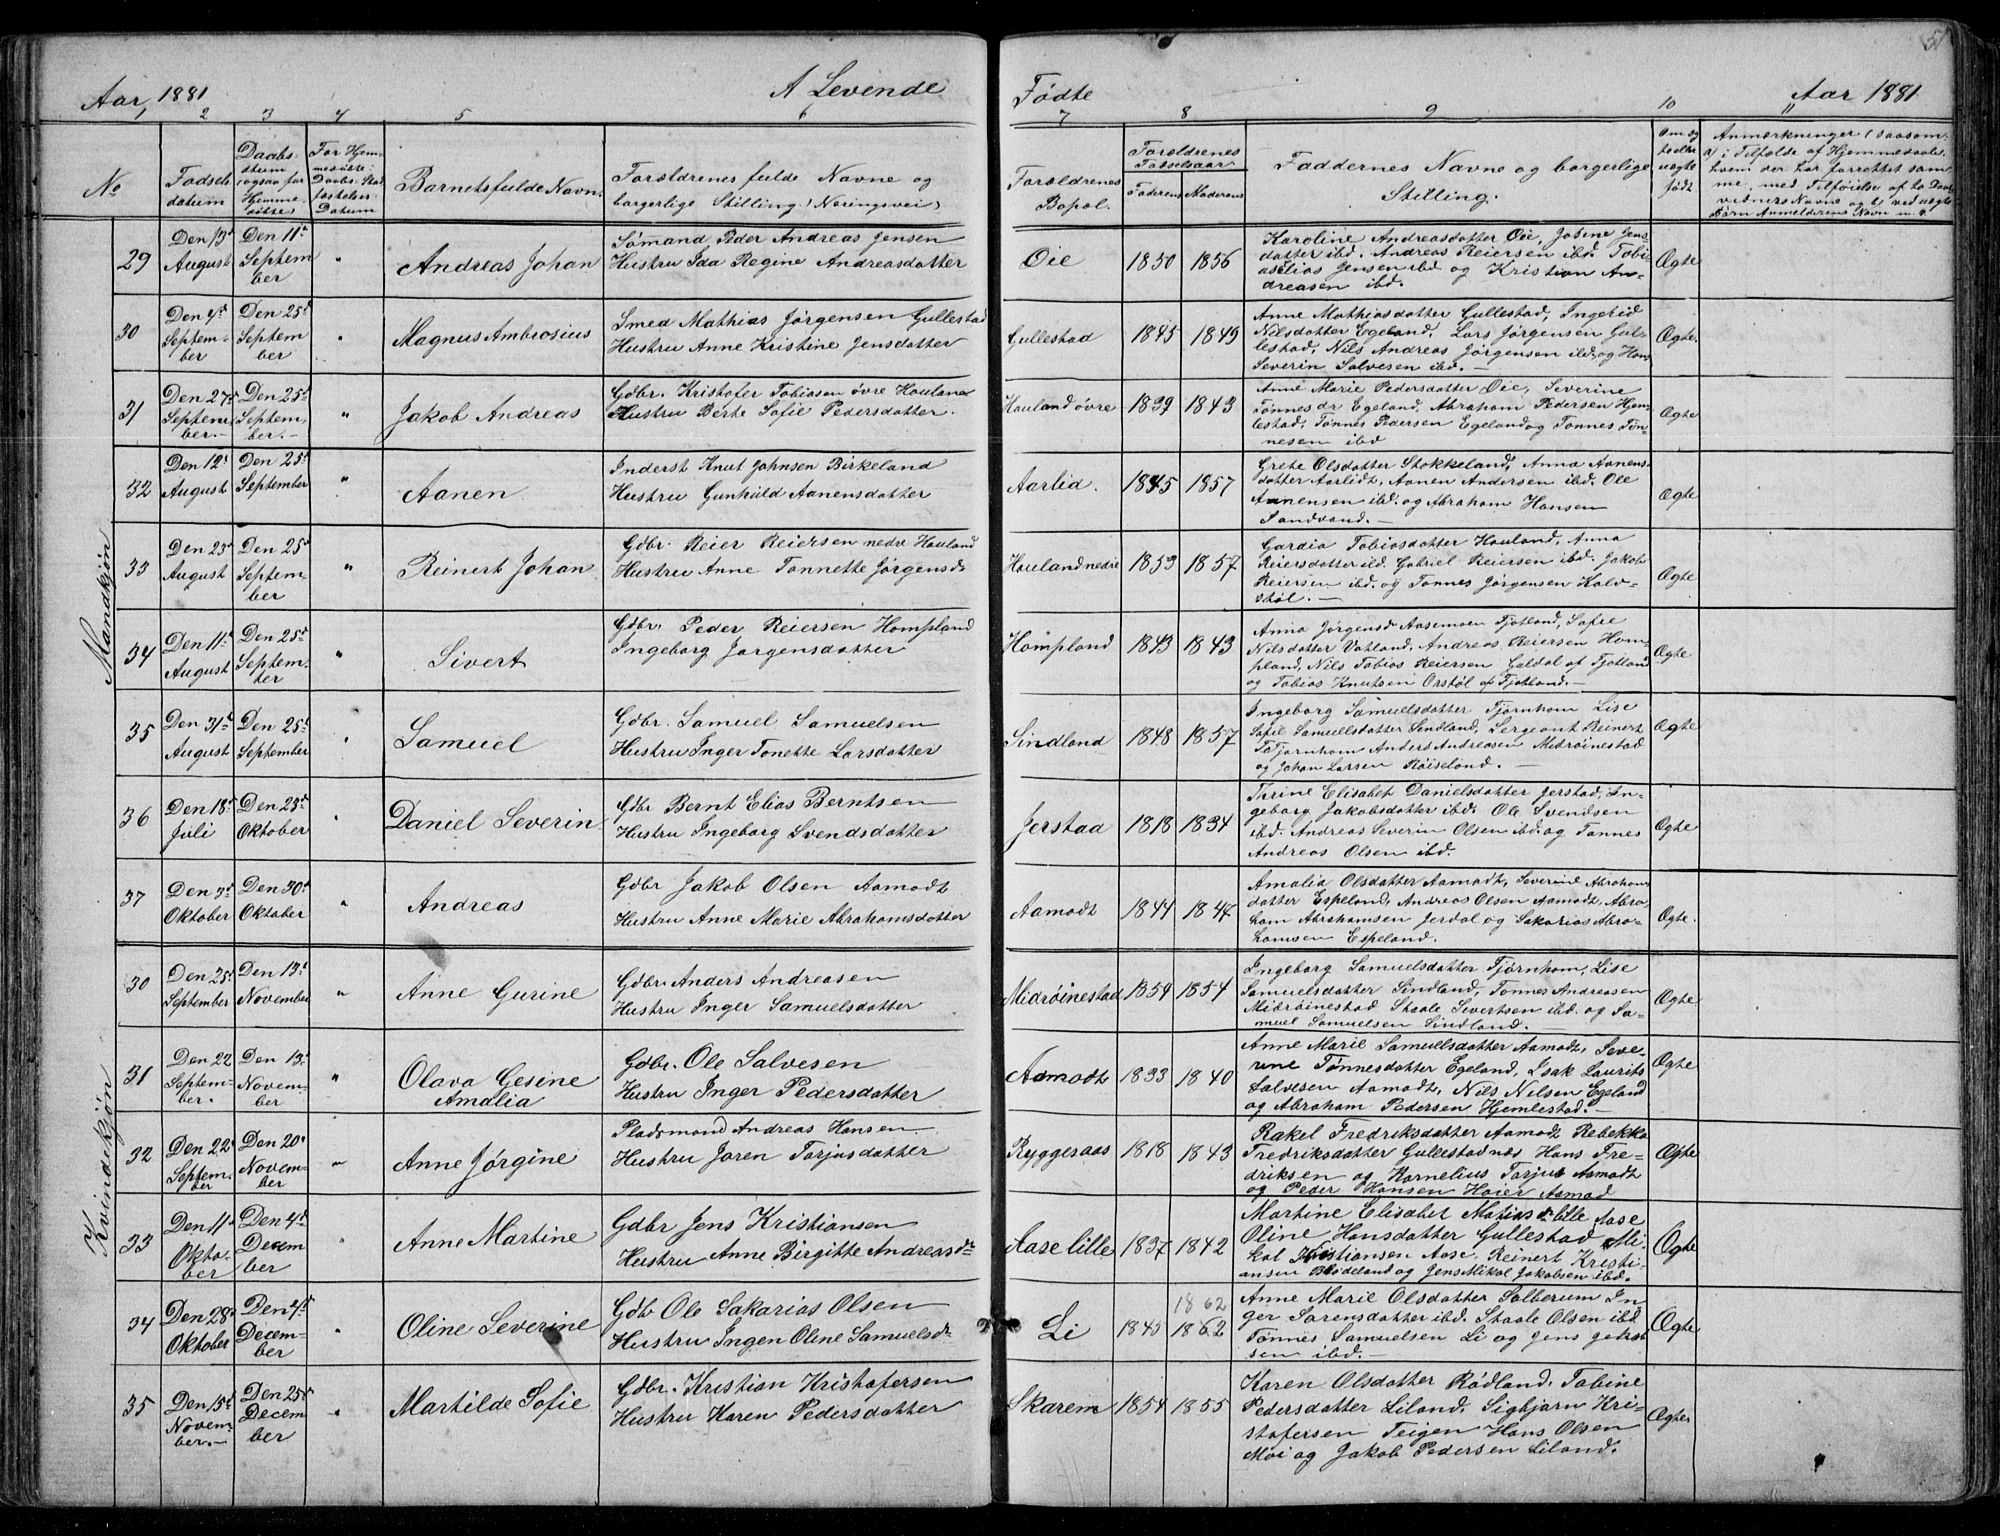 Aar 1881
A Levende
Fødte
Aar 1881
51
1 2 3 4 5 6 7 8 9 10 11
No
Fødsels
datum
Daabs-
datum
(ogsaa for
Hjemme
døbte)
For Hjem-
medøbte
Daabs. Stad
fæstelses
Datum
Barnets fulde Navn.
Forældrenes fulde Navne og
borgerlige Stilling (Næringsvei)
Forældrenes
Bopæl.
Forældrenes
Fødselsaar
Faderens Moderens
Faddernes Navne og borgerlige
Stilling.
Om eg
te eller
uægte
født
Anmærkninger (saasom
a) i Tilfælde af Hjemmedaab
hvem der har forrettet sam-
me, med Tilføielse af to Daabs
vidners Navne og b) ved uægte
Børn Anmelderens Navn m. v.
Mandkjøn
29
Den 13d
August
Den 11d
Septem
ber
"
Andreas Johan
Sømand Peder Andreas Jensen
Hustru Ida Regine Andreasdatter
Øie
1850
1856
Karoline Andreasdatter Øie, Josine Jens
datter ibd. Andreas Reiersen ibd. Tobi-
as Elias Jensen ibd og Kristian An-
dreasen ibd.
Ægte
30
Den 4d
Septem-
ber
Den 25d
Septem
ber
"
Magnus Ambrosius
Smed Mathias Jørgensen Gullestad
Hustru Anne Kristine Jensdatter
Gullestad
1845
1849
Anne Mathiasdatter Gullestad, Ingerid
Nilsdatter Egeland, Lars Jørgensen Gul-
lestad, Nils Andreas Jørgensen ibd, og Hans
Severin Salvesen ibd. —
Ægte.
31
Den 27d
Septem
ber.
Den 25d
Septem-
ber.—
"
Jakob Andreas
Gdbr. Kristofer Tobiasen øvre Houland
Hustru Berte Sofie Pedersdatter.
Houland øvre
1839
1843
Anne Marie Pedersdatter Øie, Severine
Tønnesdr Egeland, Abraham Pedersen Hjem-
lestad, Tønnes Pedersen Egeland og Tønnes Tøn-
nesen ibd
Ægte
32
Den 12d
August
Den 25d
September
"
Aanen
Inderst Knut Johnsen Birkeland
Hustru Gunhild Aanensdatter
Aarlid.
1845
1857
Grethe Olsdatter Stokkeland, Anna Aanens-
datter Aarlidt, Aanen Andersen ibd. Ole
Aanensen ibd. og Abraham Hansen
Sandvand. —
Ægte
33
Den 23d
August
Den 25d
Septem-
ber
"
Reinert Johan
Gdbr. Reier Reiersen nedre Houland
Hustru Anne Tonnette Jørgensd
Houland nedre
1853
1857
Gardia Tobiasdatter Houland, Anna
Reiersdatter ibd. Gabriel Reiersen ibd. Jakob
Reiersen ibd. og Tønnes Jørgensen Kalv-
støl. —
Ægte
34
Den 11d
August
Den 25d
Septem-
ber
"
Sivert
Gdbr. Peder Reiersen Hompland
Ingeborg Jørgensdatter
Hompland
1843
1843
Anna Jørgensd Aasemoen Fjotland, Sofie
Nilsdatter Vatland, Andreas Reiersen Hom-
pland, Nils Tobias Reiersen Galdal af Fjotland
og Tobias Knutsen Orstøl af Fjotland. —
Ægte
35
Den 31d
August
Den 25d
September
"
Samuel
Gdbr. Samuel Samuelsen
Hustru Inger Tonette Larsdatter
Sindland
1848
1857
Ingeborg Samuelsdatter Tjørnhom Lise
Sofie Samuelsdatter Sindland, Sergeant Reinert
Tjørnhom Anders Andreasen Midrøinestad
og Johan Larsen Røiseland. —
Ægte
36
Den 18d
Juli
Den 23d
Oktober
"
Daniel Severin
Gdbr Bernt Elias Berntsen
Hustru Ingeborg Svendsdatter
Jerstad
1818
1834
Thrine Elisabet Danielsdatter Jerstad, In-
geborg Jakobsdatter ibd. Ole Svendsen
ibd. Andreas Severin Olsen ibd. og Tønnes
Andreas Olsen ibd.
Ægte
37
Den 3d
Oktober
Den 30d
Oktober
"
Andreas
Gdbr Jakob Olsen Aamodt
Hustru Anne Marie Abrahamsdatter
Aamodt
1844
1847
Amalia Olsdatter Aamodt, Severine Abraham
datter Espeland, Andreas Olsen Aamodt, Abra-
ham Abrahamsen Jerdal og Sakarias Abra-
hamsen Espeland.
Ægte.
Kvindekjøn
30
Den 25d
September
Den 13d
November
"
Anne Gurine
Gdbr. Anders Andreasen
Hustru Inger Samuelsdatter
Midrøinestad
1854
1854
Ingeborg Samuelsdatter Tjørnhom, Lise
Samuelsdatter Sindland, Tønnes Andreasen
Midrøinestad Staale Severtsen ibd. og Sa-
muel Samuelsen Sindland.
Ægte
31
Den 22
Septem-
ber.
Den 13d
Novem-
ber
"
Olava Gesine
Amalia
Gdbr. Ole Salvesen
Hustru Inger Pedersdatter
Aamodt
1833
1840
Anne Marie Samuelsdatter Aamodt, Seve-
rine Tønnesdatter Egeland, Isak Laurits
Salvesen Aamodt, Nils Nilsen Egeland
og Abraham Pedersen Hjemlestad. —
Ægte
32
Den 22d
Septem-
ber
Den 20d
Novem-
ber
"
Anne Jørgine
Pladsmand Andreas Hansen
Hustru Joren Tarjusdatter
Ryggeraas
1818
1843
Rakel Fredriksdatter Aamodt Rebekka
Fredriksdatter Gullestadnæs Hans Fre-
driksen og Kornelius Tarjus Aamodt
og Peder Hansen Haier Aamod
Ægte
33
Den 11d
Okto-
ber
Den 4d
Decem
ber
"
Anne Martine
Gdbr Jens Kristiansen
Hustru Anne Birgitte Andreasdtr
Aase lille
1837
1842
Martine Elisabet Matiasdr lille Aase
Oline Hansdatter Gullestad Mi-
kal Kristiansen Aase. Reinert Kristi-
ansen Bødeland og Jens Mikal Jakobsen ibd.
Ægte
34
Den 28d
Oktober
Den 4d
Decem-
ber
"
Oline Severine
Gdb Ole Sakarias Olsen
Hustru Ingen Oline Samuelsdtr
Li
1845
1862
1862
Anne Marie Olsdatter Salberum In-
ger Sørensdatter ibd. Staale Olsen ibd
Tønnes Samuelsen Li og Jens Jakob
sen ibd. —
Ægte
35
Den 15d
Novem-
ber. —
Den 25d
Decem
ber
"
Martilde Sofie
Gdbr. Kristian Kristofersen
Hustru Karen Pedersdatter
Skarem
1854
1855
Karen Olsdatter Rødland. Tobine
Pedersdatter Liland. Sigbjørn Kri-
stofersen Teigen Hans Olsen
Moi og Jakob Pedersen Liland.
Ægte